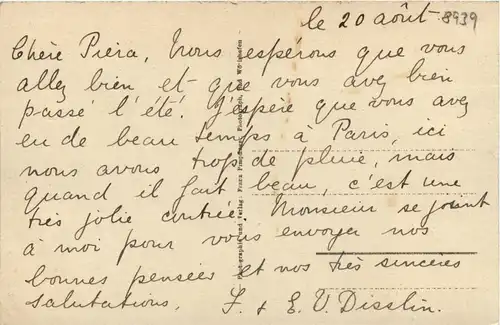 le 20 août 8939
Chère Piera, Nous espérons que vous
allez bien et que vous avez bien
passé l'été. J'espère que vous avez
eu de beau temps à Paris, ici
nous avons trop de pluie, mais
quand il fait beau, c'est une
très jolie contrée. Monsieur se joint
à moi pour vous envoyer nos
bonnes pensées et nos très sincères
salutations. F. & E. V. Disslin.
Photographie und Verlag: Franz Bad Wörishofen